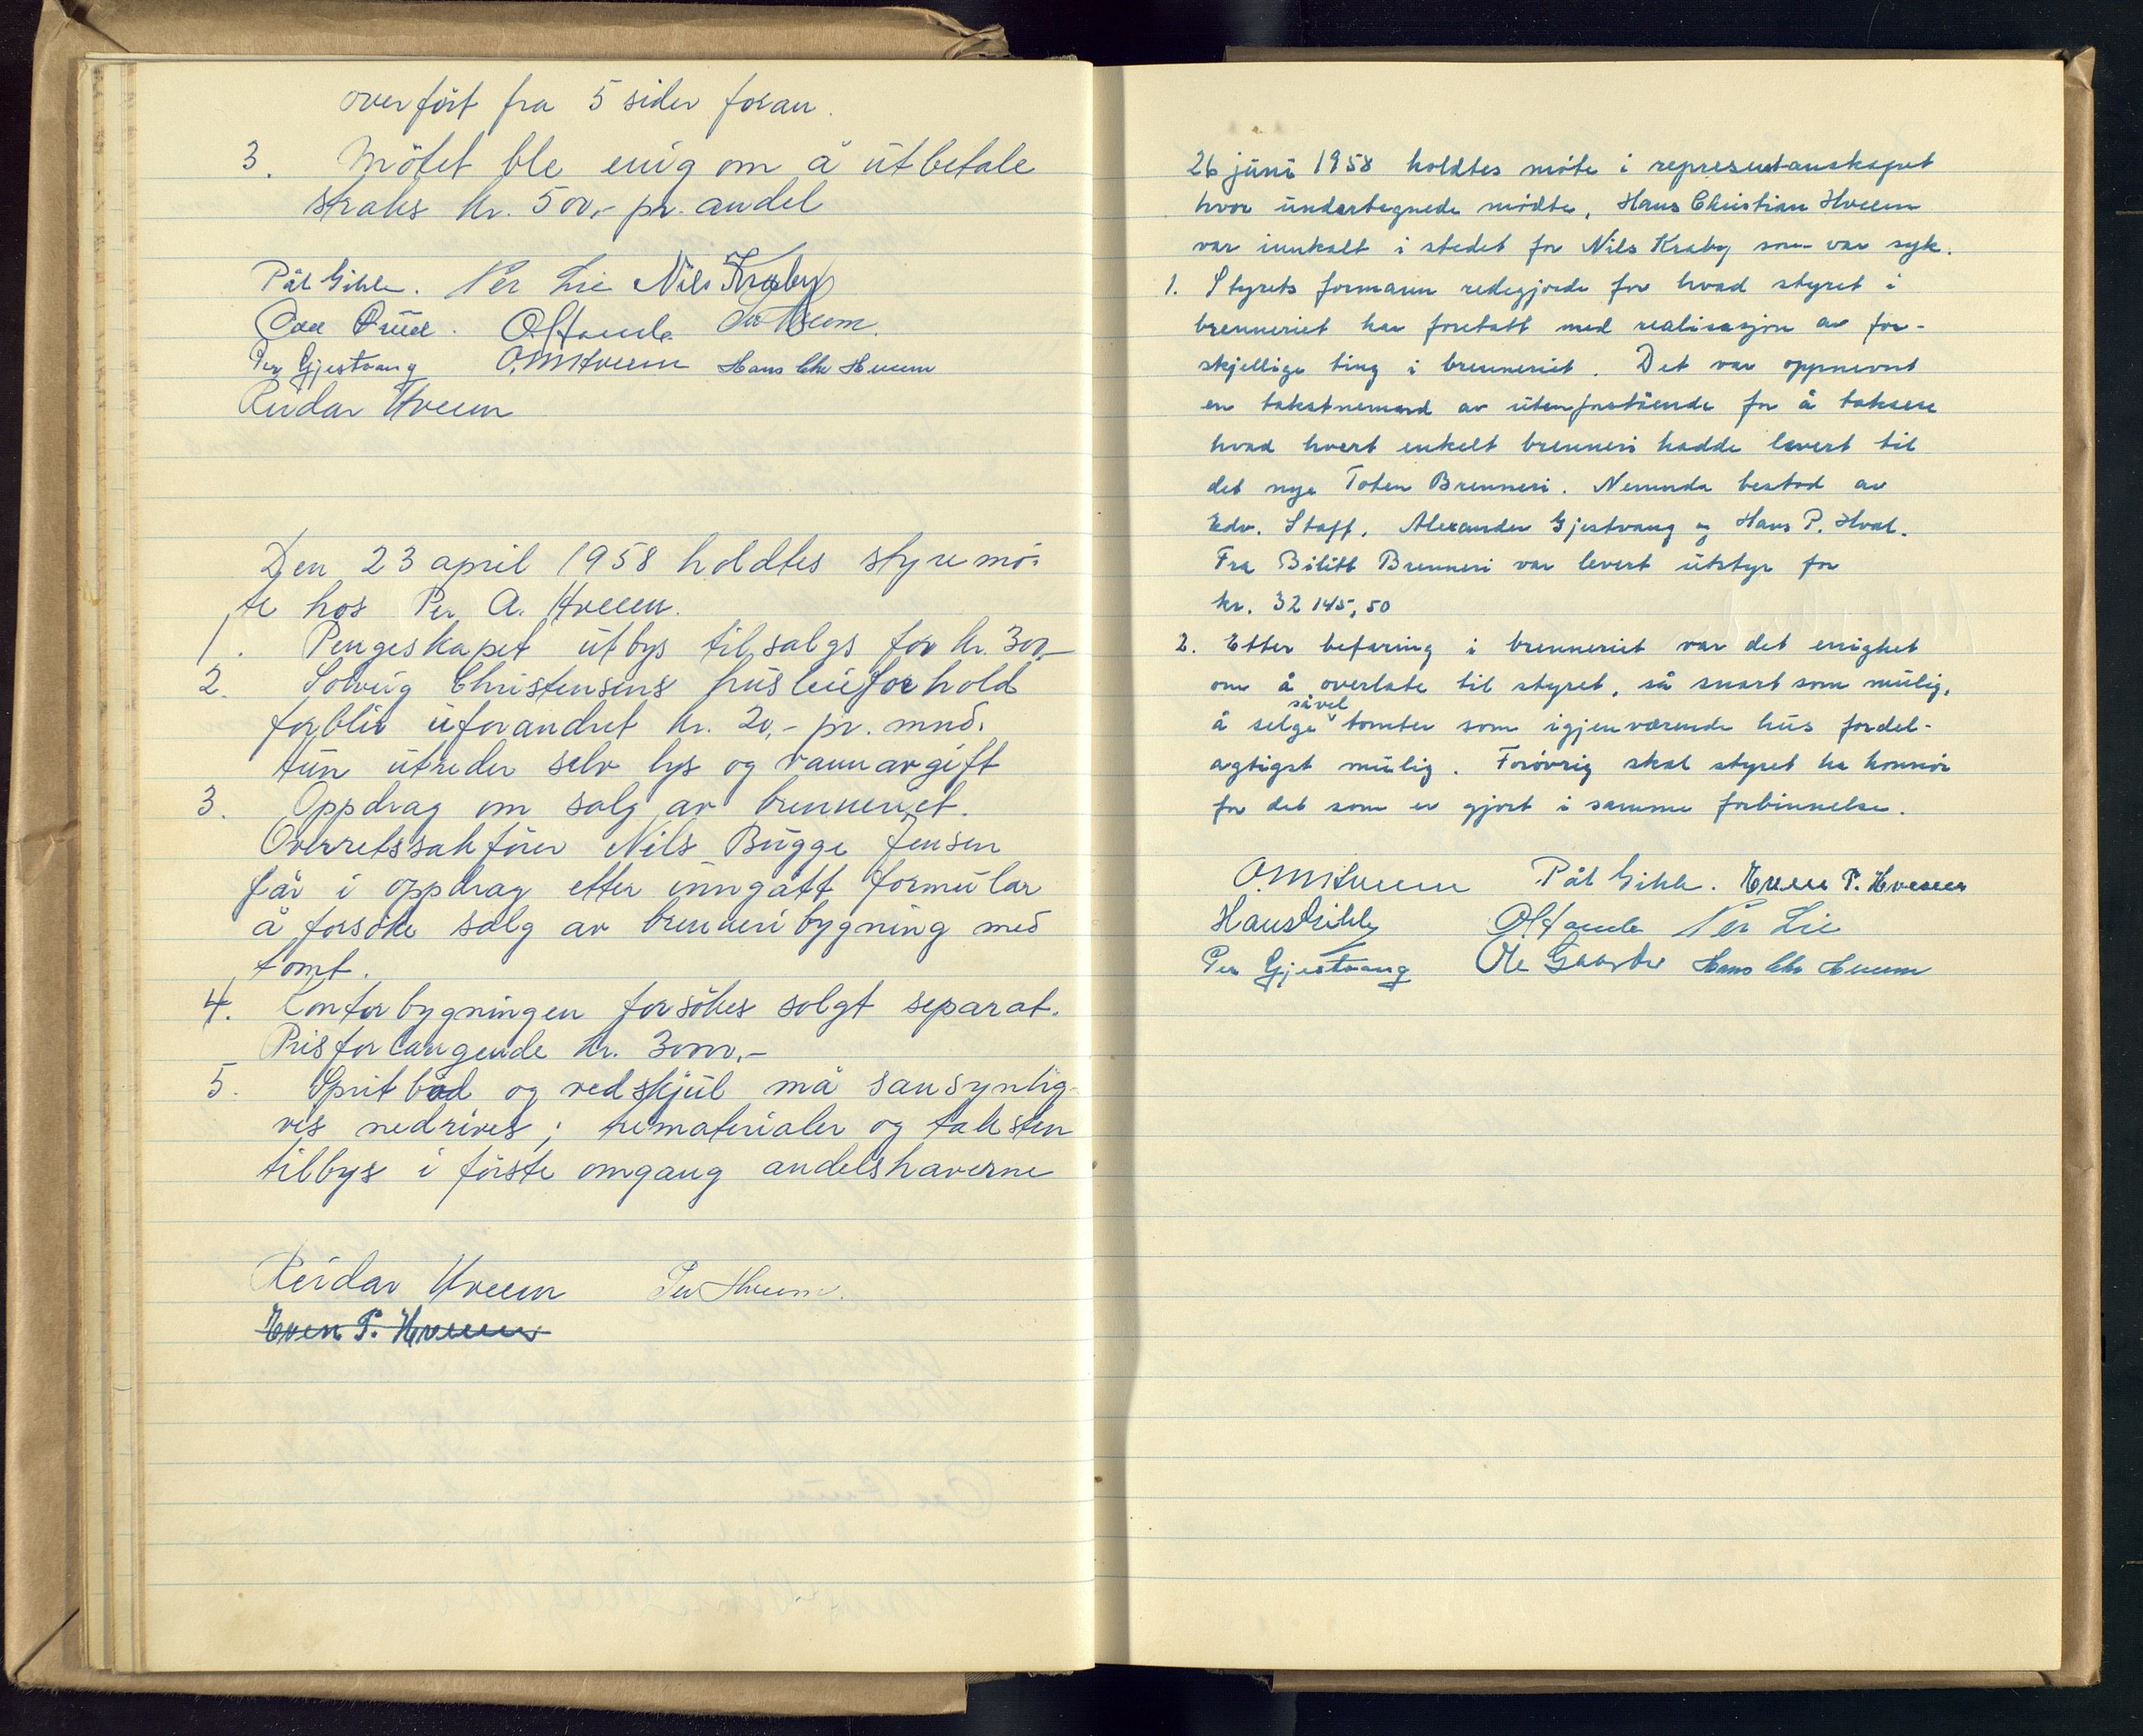 overført fra 5 sider foran.
3. Møtet ble enig om å utbetale
straks kr. 500,- pr. andel
Pål Gihle. Per Lie Nils Kraby
Per Hveem.
Per Gjestvang O.M. Hveem Hans Chr Hveem
Reidar Hveem
Den 23 april 1958 holdtes styremø-
te hos Per A. Hveem.
1. Pengeskapet utbys til salgs for kr. 300,-
2. Solveig Christensens husleieforhold
forblir uforandret kr. 20,- pr. mnd.
Hun utreder selv lys og vannavgift
3. Oppdrag om salg av brenneriet.
Overretssakfører Nils Bugge Jensen
får i oppdrag etter inngått formular
å forsøke salg av brenneribygning med
tomt.
4. Kontorbygningen forsøkes solgt separat.
Prisforlangende kr. 3000,-
5. Spritbod og vedskjul må sansynlig-
vis nedrives; trematerialer og taksten
tilbys i første omgang andelshaverne
Reidar Hveem Per Hveem.
Even P. Hveem
26 juni 1958 holdtes møte i representanskapet
hvor undertegnede mødte, Hans Christian Hveem
var innkalt i stedet for Nils Kraby som var syk.
1. Styrets formann redegjorde for hvad styret i
brenneriet har foretatt med realisasjon av for-
skjellige ting i brenneriet. Det var oppnevnt
en takstnemnd av utenforstående for å taksere
hvad hvert enkelt brenneri hadde levert til
det nye Toten Brenneri. Nemnda bestod av
Edv. Staff, Alexander Gjestvang og Hans P. Hval.
Fra Bilitt Brenneri var levert utstyr for
kr. 32 145,50
2. Etter befaring i brenneriet var det enighet
om å overlate til styret, så snart som mulig,
å selge såvel tomter som igjenværende hus fordel-
agtigst mulig. Forøvrig skal styret ha honnør
for det som er gjort i samme forbinnelse.
O.M. Hveem Pål Gihle. Even P. Hveem
Hans Gihle Per Lie
Per Gjestvang Ole Hans Chr Hveem